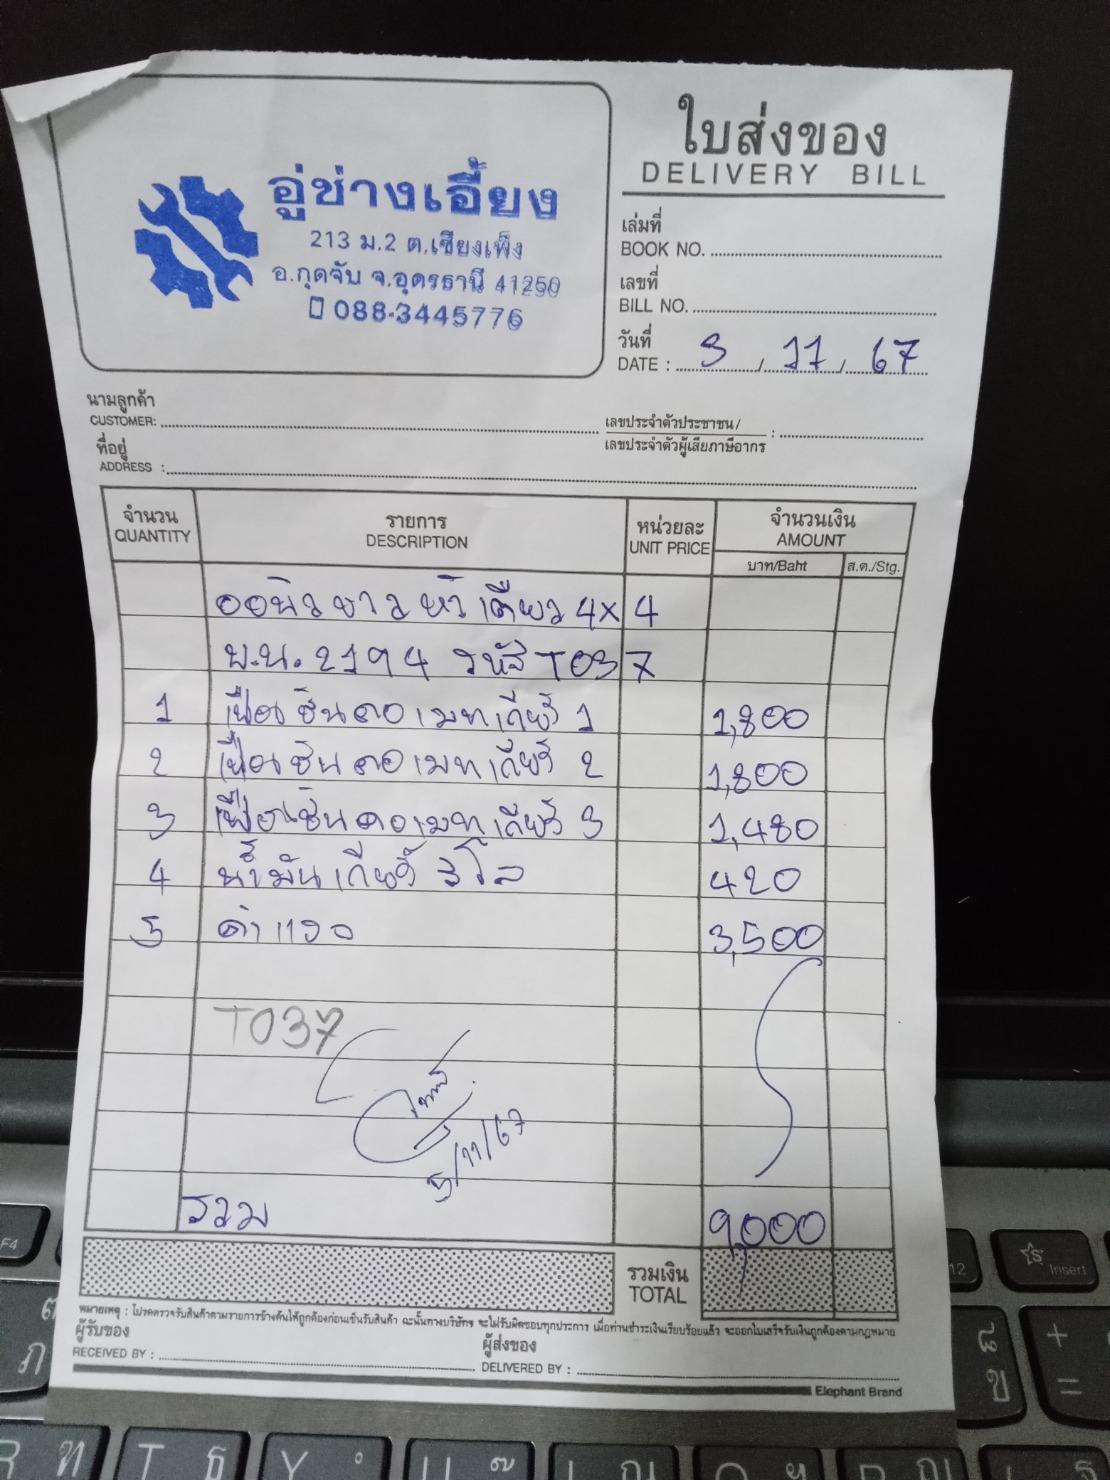 ใบส่งของ
DELIVERY BILL
อู่ช่างเอี้ยง
213 ม.2 ต.เชียงเพ็ง
อ.กุดจับ จ.อุดรธานี 41250
088-3445776
เล่มที่
BOOK NO.
เลขที่
BILL NO.
วันที่
DATE : 3 / 11 / 67
นามลูกค้า
CUSTOMER:
เลขประจำตัวประชาชน/
เลขประจำตัวผู้เสียภาษีอากร :
ที่อยู่
ADDRESS :
จำนวน รายการ หน่วยละ จำนวนเงิน
QUANTITY DESCRIPTION UNIT PRICE AMOUNT
บาท/Baht ส.ต./Stg.
ออนิวขาวหัวเดียว 4x4
บ.น. 2194 รหัส T037
1 เฟืองซินคอเมทเกียร์ 1 1,800
2 เฟืองซินคอเมทเกียร์ 2 1,800
3 เฟืองซินคอเมทเกียร์ 3 1,480
4 น้ำมันเกียร์ 3 โล 420
5 ค่าแรง 3,500
T037
5/11/67
รวม 9,000
รวมเงิน
TOTAL
หมายเหตุ : โปรดตรวจรับสินค้าตามรายการข้างต้นให้ถูกต้องก่อนเซ็นรับสินค้า ฉะนั้นทางบริษัทฯ จะไม่รับผิดชอบทุกประการ เมื่อท่านชำระเงินเรียบร้อยแล้ว จะออกใบเสร็จรับเงินถูกต้องตามกฎหมาย
ผู้รับของ
RECEIVED BY :
ผู้ส่งของ
DELIVERED BY :
Elephant Brand
F4
12
Insert